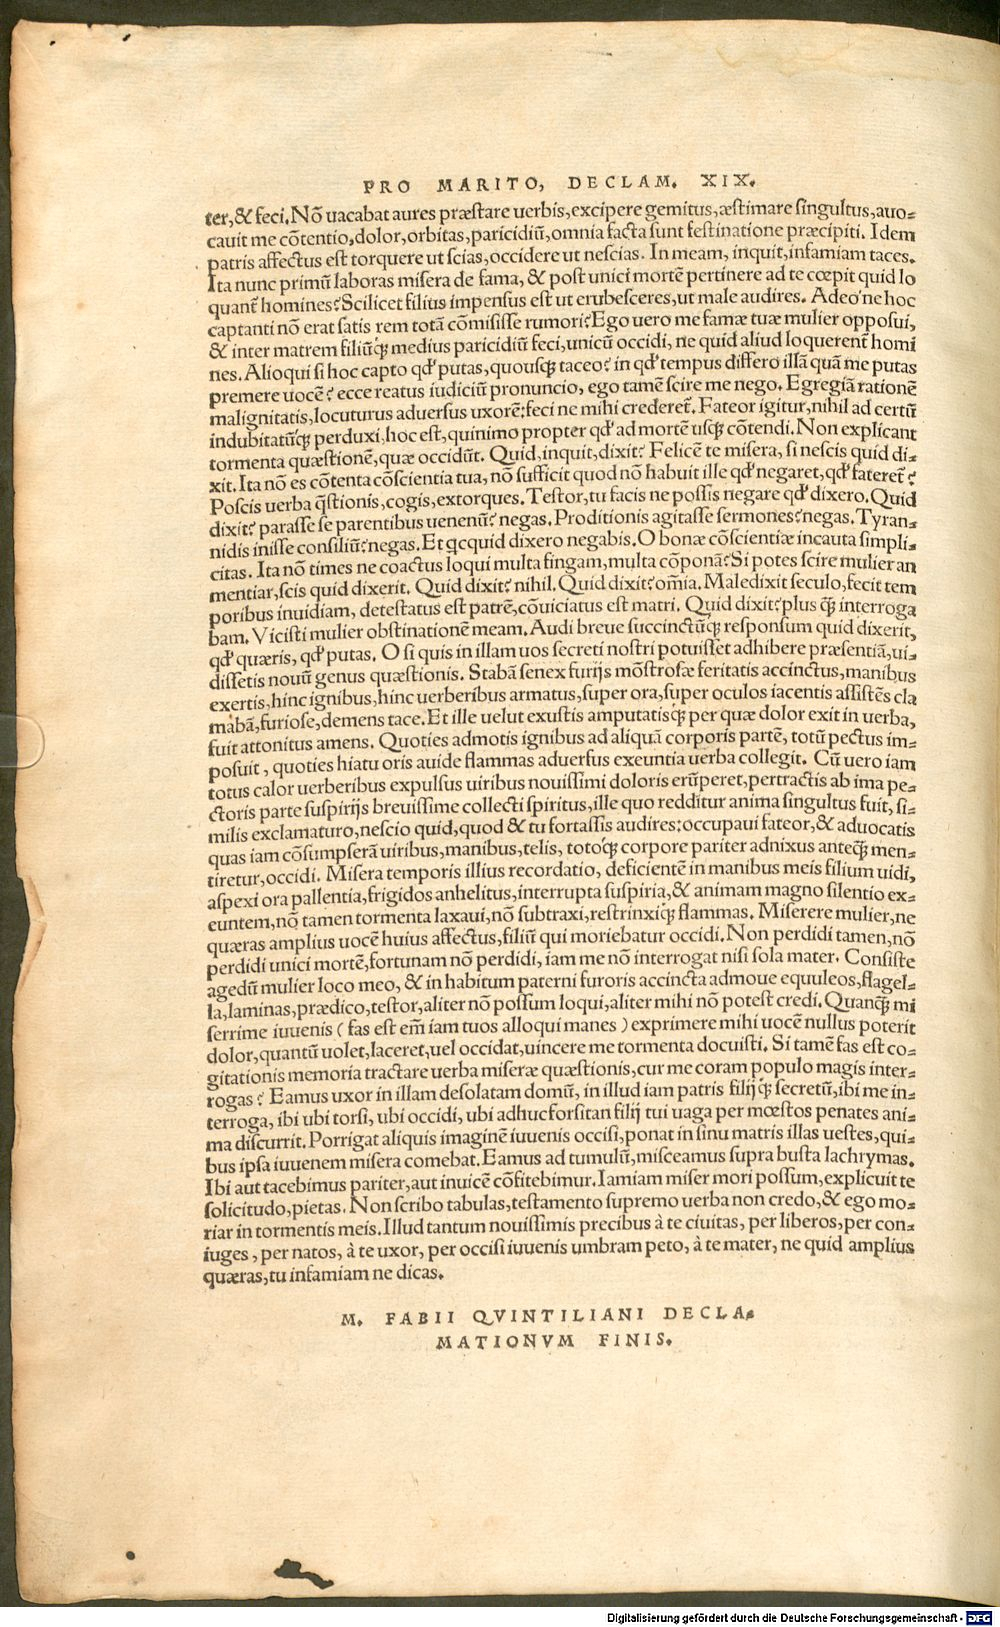 PRO MARITO, DECLAM. XIX.
ter,& feci.Nõ uacabat aures præstare uerbis,excipere gemitus,æstimare singultus,auo-
cauit me cõtentio,dolor,orbitas,paricidiũ,omnia facta sunt festinatione præcipiti. Idem
patris affectus est torquere ut scias,occidere ut nescias. In meam, inquit,infamiam taces.
Ita nunc primũ laboras misera de fama, & post unici mortẽ pertinere ad te cœpit quid lo
quant᷑ homines? Scilicet filius impensus est ut erubesceres,ut male audires. Adeo'ne hoc
captanti nõ erat satis rem totã cõmisisse rumori? Ego uero me famæ tuæ mulier opposui,
& inter matrem filiũq; medius paricidiũ feci,unicũ occidi, ne quid aliud loquerent᷑ homi
nes. Alioqui si hoc capto qđ putas,quousq; taceo? in qđ tempus differo illã quã me putas
premere uocẽ? ecce reatus iudiciũ pronuncio, ego tamẽ scire me nego. Egregiã rationẽ
malignitatis,locuturus aduersus uxorẽ;feci ne mihi crederet᷑. Fateor igitur,nihil ad certũ
indubitatũq; perduxi,hoc est,quinimo propter qđ ad mortẽ usq; cõtendi. Non explicant
tormenta quæstionẽ,quæ occidũt. Quid,inquit,dixit? Felicẽ te misera, si nescis quid di-
xit. Ita nõ es cõtenta cõscientia tua, nõ sufficit quod nõ habuit ille qđ negaret,qđ fateret᷑?
Poscis uerba q̃stionis,cogis,extorques. Testor,tu facis ne possis negare qđ dixero. Quid
dixit? parasse se parentibus uenenũ? negas. Proditionis agitasse sermones? negas. Tyran-
nidis inisse consiliũ? negas. Et qcquid dixero negabis. O bonæ cõscientiæ incauta simpli-
citas. Ita nõ times ne coactus loqui multa fingam,multa cõponã? Si potes scire mulier an
mentiar,scis quid dixerit. Quid dixit? nihil. Quid dixit? om̃ia. Maledixit seculo,fecit tem
poribus inuidiam, detestatus est patrẽ,cõuiciatus est matri. Quid dixit? plus q̃ interroga
bam. Vicisti mulier obstinationẽ meam. Audi breue succinctũq; responsum quid dixerit,
qđ quæris, qđ putas. O si quis in illam uos secreti nostri potuisset adhibere præsentiã,ui-
dissetis nouũ genus quæstionis. Stabã senex furijs mõstrosæ feritatis accinctus,manibus
exertis,hinc ignibus,hinc uerberibus armatus,super ora,super oculos iacentis assistẽs cla
mabã,furiose,demens tace. Et ille uelut exustis amputatisq; per quæ dolor exit in uerba,
fuit attonitus amens. Quoties admotis ignibus ad aliquã corporis partẽ, totũ pectus im-
posuit, quoties hiatu oris auide flammas aduersus exeuntia uerba collegit. Cũ uero iam
totus calor uerberibus expulsus uiribus nouissimi doloris erũperet,pertractis ab ima pe-
ctoris parte suspirijs breuissime collecti spiritus,ille quo redditur anima singultus fuit, si-
milis exclamaturo,nescio quid,quod & tu fortassis audires:occupaui fateor,& aduocatis
quas iam cõsumpserã uiribus,manibus,telis, totoq; corpore pariter adnixus anteq̃ men-
tiretur,occidi. Misera temporis illius recordatio, deficientẽ in manibus meis filium uidi,
aspexi ora pallentia,frigidos anhelitus,interrupta suspiria,& animam magno silentio ex-
euntem,nõ tamen tormenta laxaui,nõ subtraxi,restrinxiq; flammas. Miserere mulier,ne
quæras amplius uocẽ huius affectus,filiũ qui moriebatur occidi. Non perdidi tamen,nõ
perdidi unici mortẽ,fortunam nõ perdidi, iam me nõ interrogat nisi sola mater. Consiste
agedũ mulier loco meo, & in habitum paterni furoris accincta admoue equuleos,flagel-
la,laminas,prædico,testor,aliter nõ possum loqui,aliter mihi nõ potest credi. Quanq̃ mi
serrime iuuenis ( fas est em̃ iam tuos alloqui manes ) exprimere mihi uocẽ nullus poterit
dolor,quantũ uolet,laceret,uel occidat,uincere me tormenta docuisti. Si tamẽ fas est co-
gitationis memoria tractare uerba miseræ quæstionis,cur me coram populo magis inter-
rogas? Eamus uxor in illam desolatam domũ, in illud iam patris filijq; secretũ,ibi me in-
terroga, ibi ubi torsi, ubi occidi, ubi adhuc forsitan filij tui uaga per mœstos penates ani-
ma discurrit. Porrigat aliquis imaginẽ iuuenis occisi,ponat in sinu matris illas uestes,qui-
bus ipsa iuuenem misera comebat. Eamus ad tumulũ,misceamus supra busta lachrymas.
Ibi aut tacebimus pariter,aut inuicẽ cõfitebimur. Iamiam miser mori possum,explicuit te
solicitudo,pietas. Non scribo tabulas,testamento supremo uerba non credo,& ego mo-
riar in tormentis meis. Illud tantum nouissimis precibus à te ciuitas, per liberos,per con-
iuges, per natos, à te uxor, per occisi iuuenis umbram peto, à te mater, ne quid amplius
quæras,tu infamiam ne dicas.
M. FABII QVINTILIANI DECLA-
MATIONVM FINIS.
Digitalisierung gefördert durch die Deutsche Forschungsgemeinschaft - DFG